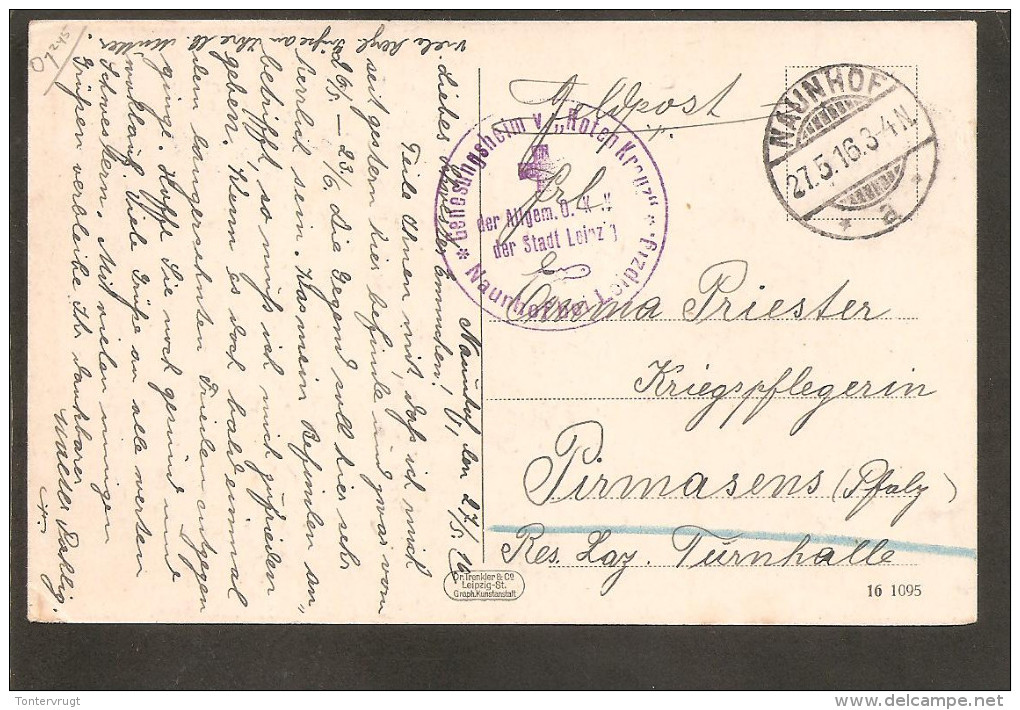 Naunhof, den 27/5. 16.
Liebes
Teile Ihnen mit, daß ich mich
seit gestern hier befinde und zwar vom
26/5. – 23/6. Die Gegend soll hier sehr
herrlich sein. Was mein Befinden an,
betrifft, so muß ich mich zufrieden
geben. Wenn es doch bald einmal
dem langersehnten Frieden entgegen
ginge. Hoffe Sie noch gesund und
Viele Grüße an alle werten
Schwestern. Mit vielen innigen
Grüßen verbleibe Ihr dankbarer
Walter
Viele herzl. Grüße an Ihre lb. Mutter.
01245
Feldpost
NAUNHOF
27.5.16.3-4N.
Genesungsheim v. „Roten Kreuz"
der Allgem. O.-K.-K.
der Stadt Leipzig
* Naunhof bei Leipzig *
Frl.
Emma Priester
Kriegspflegerin
Pirmasens (Pfalz)
Res. Laz. Turnhalle
Dr. Trenkler & Co
Leipzig-St.
Graph. Kunstanstalt
16 1095
Tontervrugt
delcampe.net